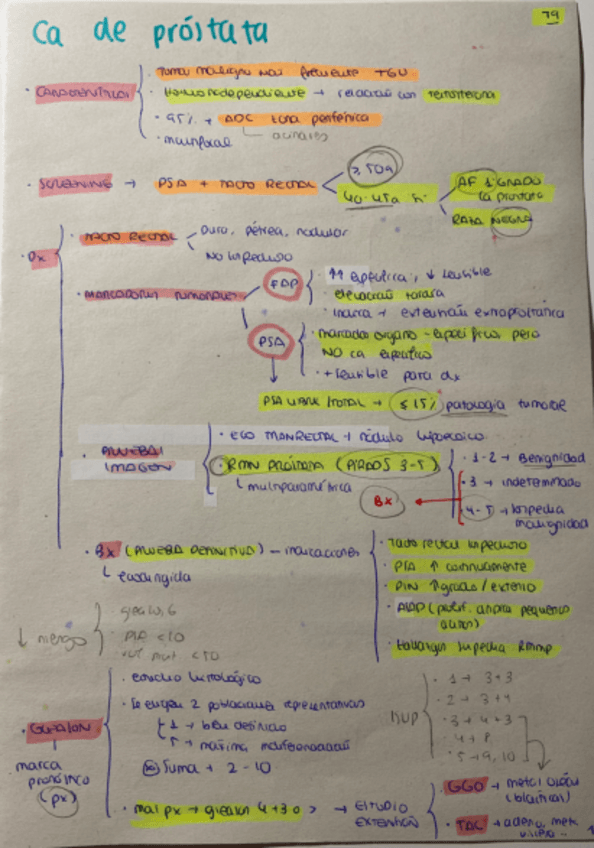 79
Ca de próstata
Tumor maligno más frecuente TGU
Características
Hormonodependiente → relación con testosterona
95% → ADC zona periférica
acinares
multifocal
≥ 50a
Screening → PSA + Tacto rectal
40-45a si
AF 1º grado
ca próstata
Raza negra
Dx
Tacto rectal
Duro, pétrea, nodular
No
Marcadores tumorales
FAP
↑↑ específica, ↓ sensible
elevación tardía
indica → extensión extraprostática
PSA
marcador órgano-específico pero
NO ca específico
+ sensible para dx
PSA libre/total → ≤ 15% patología tumoral
Pruebas
imagen
ECO transrectal → nódulo hipoecoico
RMN próstata (PIRADS 3-5)
multiparamétrica
1-2 → Benignidad
3 → indeterminado
4-5 → sospecha
malignidad
Bx
Bx (prueba definitiva) → indicaciones
ecodirigida
Tacto rectal sospechoso
PSA ↑ continuamente
PIN ↑ grado / extenso
ASAP (prolif. atípica pequeños
acinos)
hallazgos sospecha RMmp
↓ riesgo
gleason 6
PSA <10
<50
Gleason
marca
pronóstico
(px)
estudio histológico
Se eligen 2 poblaciones representativas
1 → bien definido
5 → máxima
Suma → 2 - 10
mal px → gleason 4+3 o > → Estudio
extensión
ISUP
1 → 3+3
2 → 3+4
3 → 4+3
4 → 8
5 → 9, 10
GGO → mets óseas
(blásticas)
TAC → adeno, mets